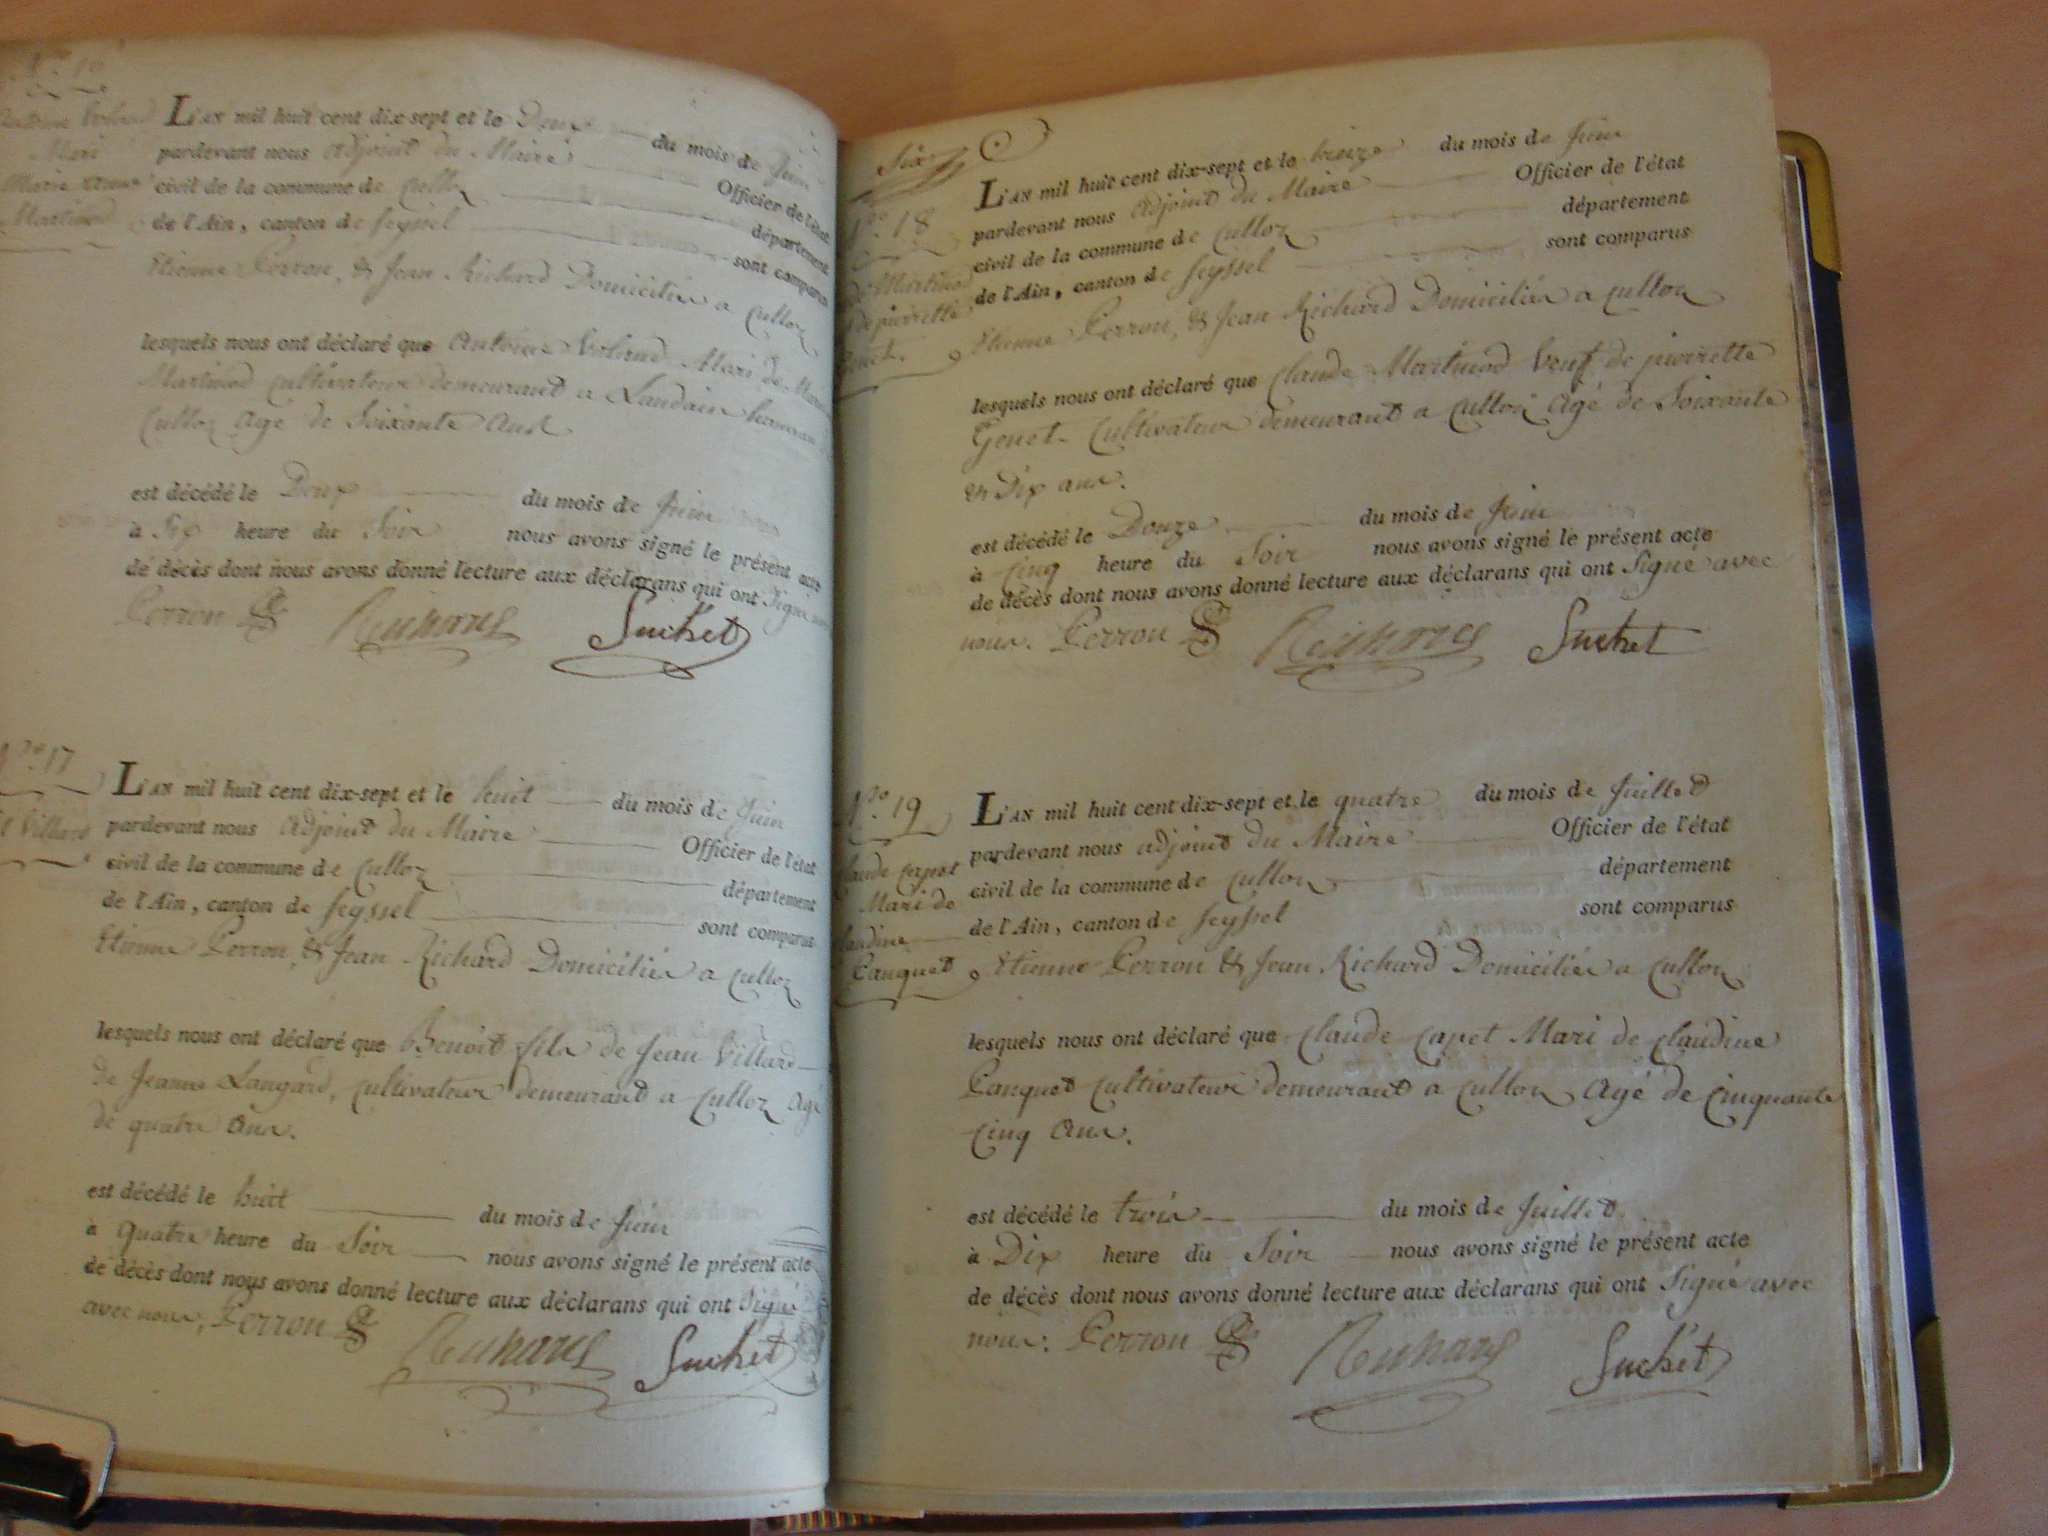 Mari
Marie anne
Martinod
L'AN mil huit cent dix-sept et le Deux du mois de Juin
pardevant nous Adjoint du Maire Officier de l'état
civil de la commune de Culloz département
de l'Ain, canton de Seyssel sont comparus
Etienne Perron, & Jean Richard Domiciliés a Culloz
lesquels nous ont déclaré que Antoine Mari de
Martinod cultivateur demeurant a Landaize
Culloz Agé de Soixante Ans
est décédé le Deux du mois de Juin
à Six heure du Soir nous avons signé le présent acte
de décès dont nous avons donné lecture aux déclarans qui ont Signé
Perron Richard Suchet
No 17
Villard
L'AN mil huit cent dix-sept et le huit du mois de Juin
pardevant nous Adjoint du Maire Officier de l'état
civil de la commune de Culloz département
de l'Ain, canton de Seyssel sont comparus
Etienne Perron, & Jean Richard Domiciliés a Culloz
lesquels nous ont déclaré que Benoit fils de Jean Villard
de Jeanne Langard, cultivateur demeurant a Culloz Agé
de quatre Ans.
est décédé le huit du mois de Juin
à Quatre heure du Soir nous avons signé le présent acte
de décès dont nous avons donné lecture aux déclarans qui ont Signé
avec nous, Perron Richard Suchet
Six
No 18
Martinod
de pierrette
Genet.
L'AN mil huit cent dix-sept et le treize du mois de Juin
pardevant nous Adjoint du Maire Officier de l'état
civil de la commune de Culloz département
de l'Ain, canton de Seyssel sont comparus
Etienne Perron, & Jean Richard Domiciliés a Culloz
lesquels nous ont déclaré que Claude Martinod Veuf de pierrette
Genet Cultivateur demeurant a Culloz Agé de Soixante
et Dix ans.
est décédé le Douze du mois de Juin
à Cinq heure du Soir nous avons signé le présent acte
de décès dont nous avons donné lecture aux déclarans qui ont Signé avec
nous. Perron Richard Suchet
No 19
Claude Capet
Mari de
Claudine
Panquet
L'AN mil huit cent dix-sept et le quatre du mois de Juillet
pardevant nous adjoint du Maire Officier de l'état
civil de la commune de Culloz département
de l'Ain, canton de Seyssel sont comparus
Etienne Perron & Jean Richard Domiciliés a Culloz
lesquels nous ont déclaré que Claude Capet Mari de Claudine
Panquet cultivateur demeurant a Culloz Agé de Cinquante
Cinq Ans.
est décédé le trois du mois de Juillet
à Dix heure du Soir nous avons signé le présent acte
de décès dont nous avons donné lecture aux déclarans qui ont Signé avec
nous: Perron Richard Suchet